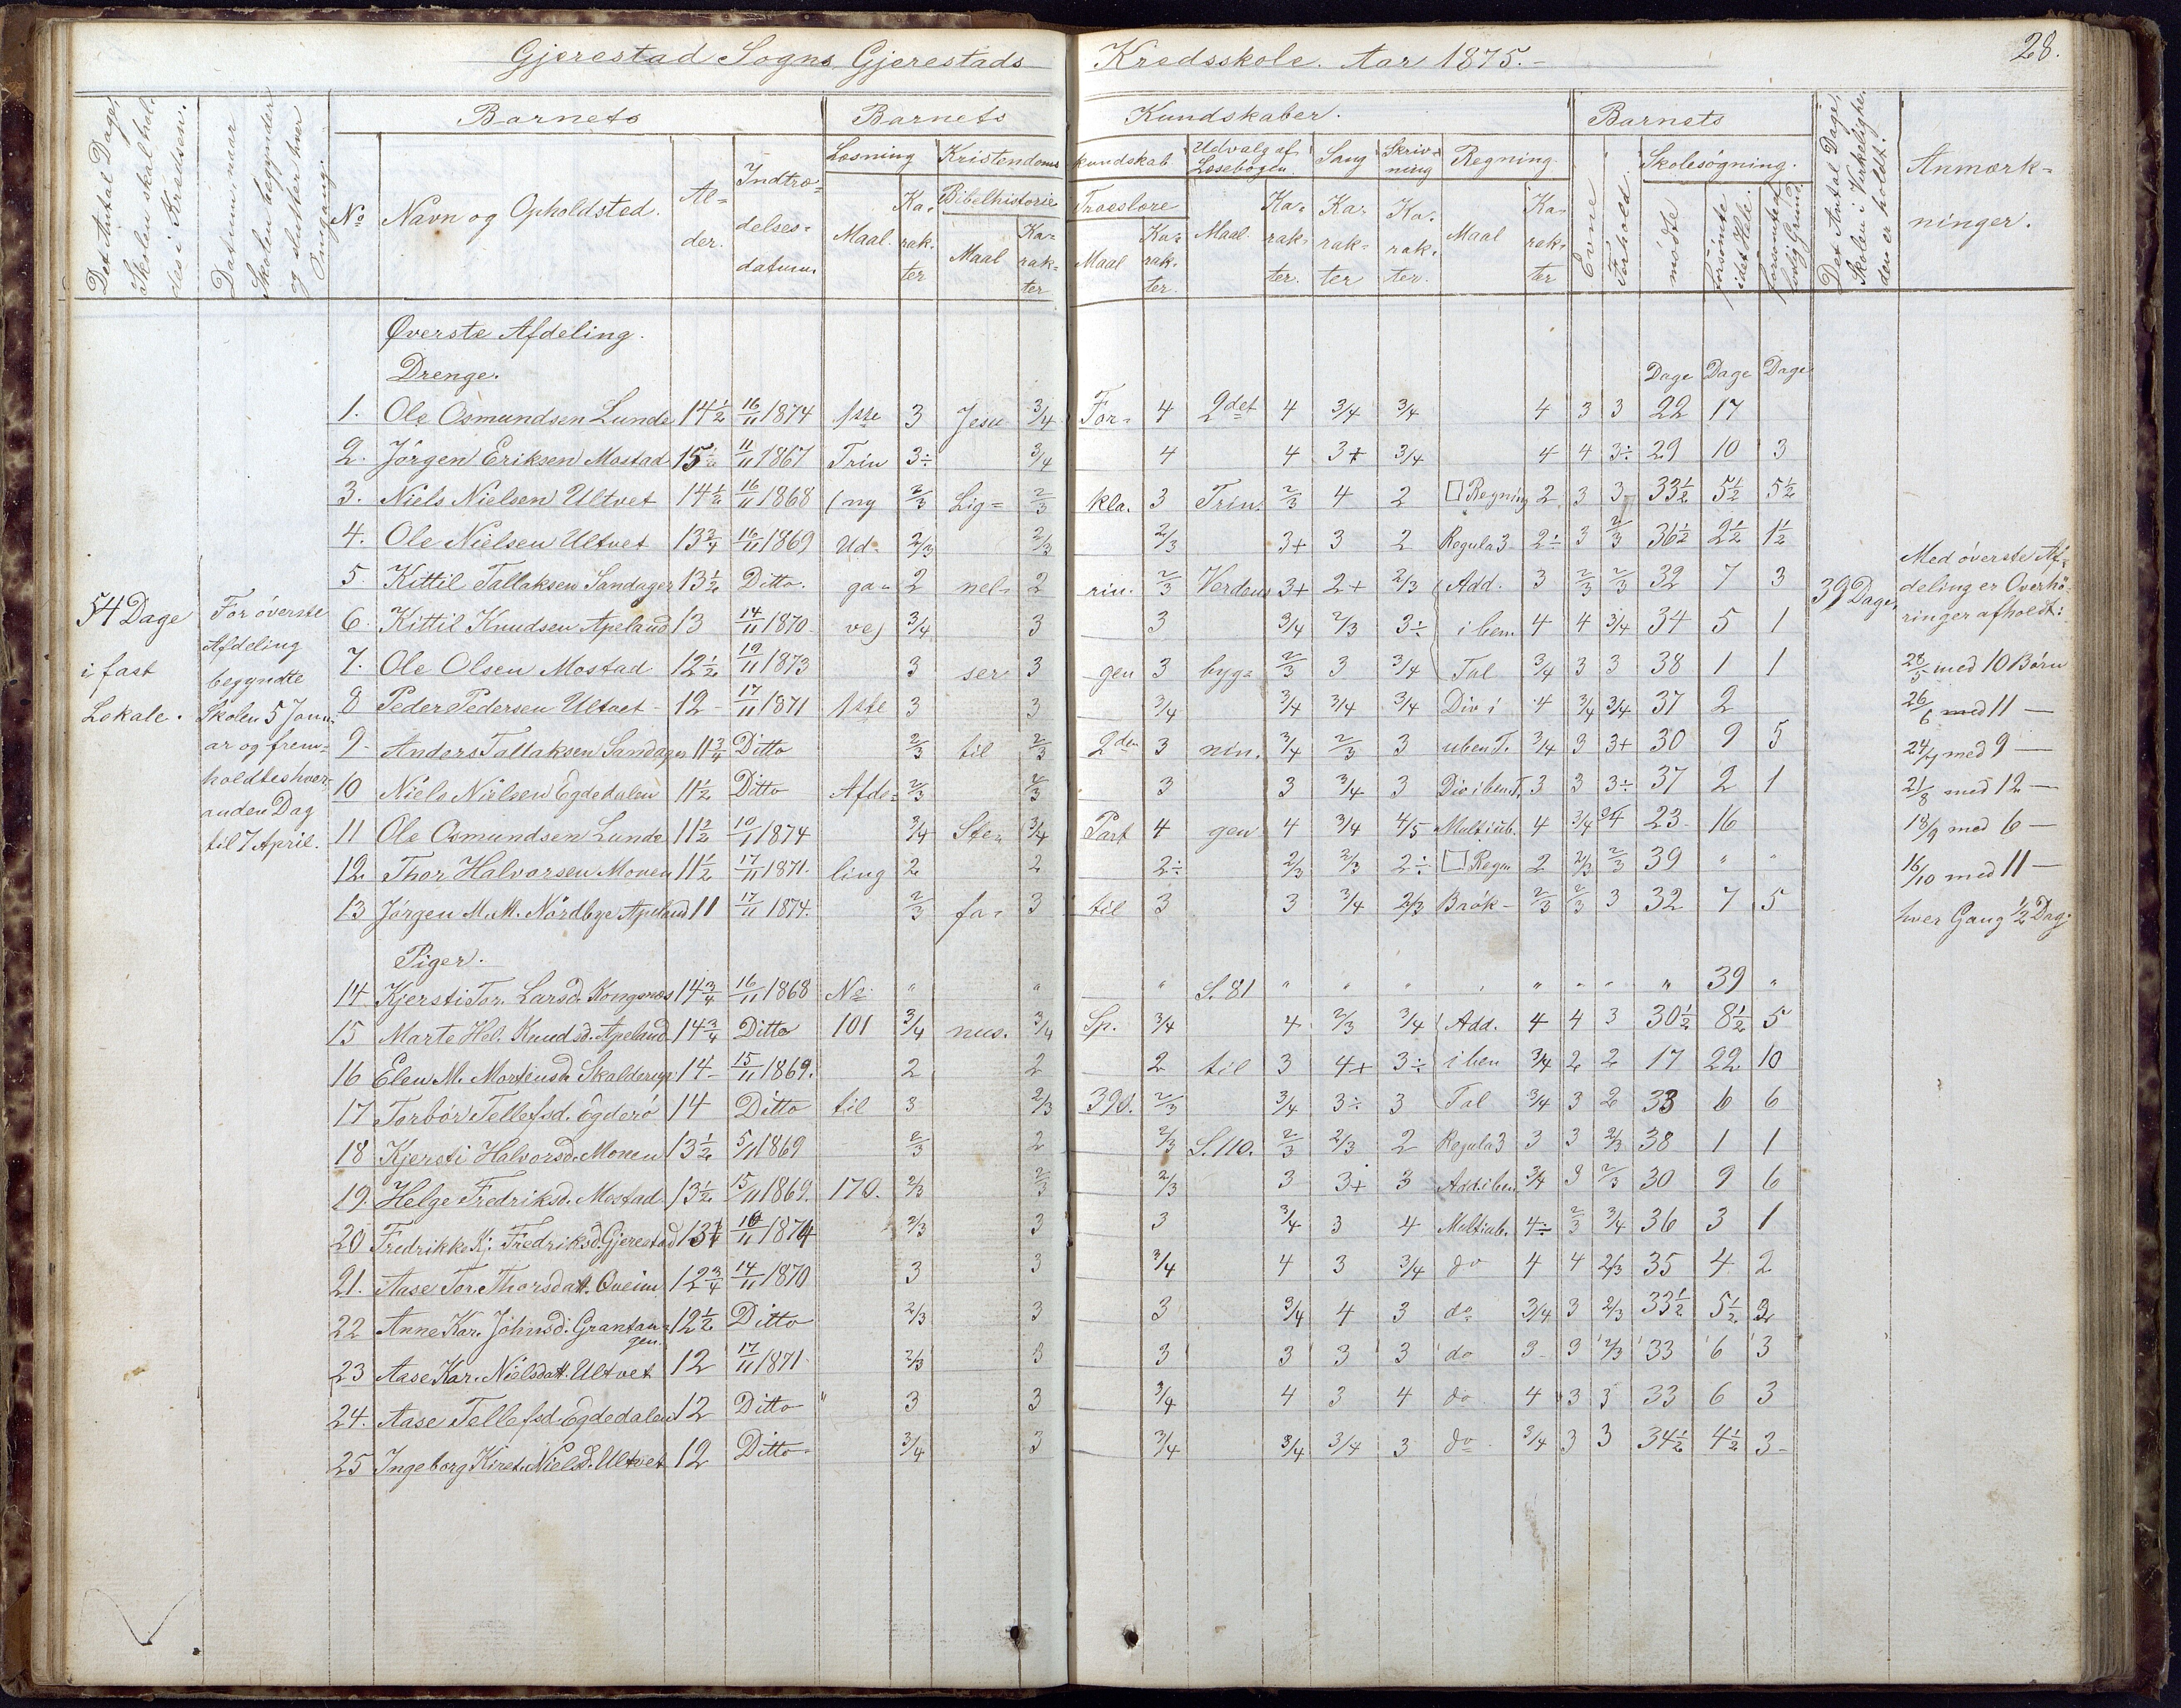 Gjerestad Sogns Gjerestads Kredsskole. Aar 1875.-
28.
Det Antal Dage, Skolen skal holdes i Kredsen.
Datum, naar Skolen begynder og slutter hver Omgang.
Barnets
Barnets Kundskaber.
Barnets
Det Antal Dage, Skolen i Virkeligheden er holdt.
Anmærkninger.
No
Navn og Opholdsted.
Alder.
Indtrædelsesdatum.
Læsning
Kristendomskundskab
Udvalg af Læsebogen.
Sang
Skrivning
Regning.
Evne
Forhold.
Skolesøgning.
Bibelhistorie
Troeslære
Maal. Karakter
Maal Karakter
Maal Karakter.
Maal. Karakter.
Karakter
Karakter.
Maal Karakter
mødte
forsømte i det Hele.
forsømte af lovlig Grund
Øverste Afdeling.
Drenge.
Dage Dage Dage
1. Ole Osmundsen Lunde 14½ 16/11 1874 1ste 3 Jesu 3/4 For= 4 2det 4 3/4 3/4 4 3 3 22 17
2. Jørgen Eriksen Mostad 15½ 11/11 1867 Trin 3÷ 3/4 4 4 3+ 3/4 4 4 3÷ 29 10 3
3. Niels Nielsen Ultvet 14½ 16/11 1868 (ny 2/3 Lig= 2/3 kla. 3 Trin. 2/3 4 2 □ Regning 2 3 3 33½ 5½ 5½
4. Ole Nielsen Ultvet 13¾ 16/11 1869 Ud- 2/3 2/3 2/3 3+ 3 2 Regula 3 2÷ 3 2/3 36½ 2½ 1½
5. Kittil Tallaksen Sandager 13½ Ditto. ga- 2 nel- 2 rin. 2/3 Verdens 3+ 2+ 2/3 Add. 3 2/3 2/3 32 7 3
6. Kittil Knudsen Apeland 13 14/11 1870. ve) 3/4 3 3 3/4 2/3 3÷ i ben 4 4 3/4 34 5 1
7. Ole Olsen Mostad 12½ 19/11 1873 3 ser 3 gen 3 byg= 2/3 3 3/4 Tal 3/4 3 3 38 1 1
8 Peder Pedersen Ultvet - 12 - 17/11 1871 1ste 3 3 3/4 3/4 3/4 3/4 Div i 4 3/4 3/4 37 2
9- Anders Tallaksen Sandager 11¾ Ditto 2/3 til 2/3 2den 3 nin. 3/4 2/3 3 uben T. 3/4 3 3+ 30 9 5
10 Niels Nielsen Egdedalen 11½ Ditto Afde= 2/3 2/3 3 3 3/4 3 Div i ben T. 3 3 3÷ 37 2 1
11 Ole Osmundsen Lunde 11½ 10/1 1874 3/4 Ste= 3/4 Part 4 gen 4 3/4 4/5 Mult i ub. 4 3/4 23 16
12. Thor Halvorsen Monen 11½ 17/11 1871. ling 2 2 2÷ 2/3 2/3 2÷ □ Regn 2 2/3 2/3 39 " "
13 Jørgen M. M. Nordbye Apeland 11 17/11 1874. 2/3 fa= 3 til 3 3 3/4 2/3 Brøk- 2/3 2/3 3 32 7 5
Piger.
14 Kjersti Tor. Larsd. Kongsnæs 14¾ 16/11 1868 No " " " S. 81 " " " " " " " " 39 "
15 Marte Hel. Knudsd. Apeland 14¾ Ditto 101 3/4 nus. 3/4 Sp. 3/4 4 2/3 3/4 Add. 4 4 3 30½ 8½ 5
16 Elen M. Mortensd. 14- 15/11 1869. 2 2 2 til 3 4+ 3÷ i ben 3/4 2 2 17 22 10
17 Torbør Tellefsd. Egderø 14 Ditto til 3 2/3 39d. 2/3 3/4 3÷ 3 Tal 3/4 3 2 33 6 6
18 Kjersti Halvorsd. Monen 13½ 5/11 1869 2/3 2 2/3 S. 110. 2/3 2/3 2 Regula 3 3 3 2/3 38 1 1
19. Helge Fredriksd. Mostad 13½ 15/11 1869. 170. 2/3 2/3 2/3 3 3+ 3 Add. i ben 3/4 3 2/3 30 9 6
20 Fredrikke Kj. Fredriksd. Gjerestad 13¼ 10/11 1874 2/3 3 3 3/4 3 4 Mult i ub. 4÷ 2/3 3/4 36 3 1
21. Aase Tor. Thorsdatt. 12¾ 14/11 1870 3 3 3/4 4 3 3/4 do 4 4 2/3 35 4 2
22 Anne Kar. Johnsd. Grantangen 12½ Ditto 2/3 3 3 3/4 4 3 do 3/4 3 2/3 33½ 5½ 2
23 Aase Kar. Nielsdatt. Ultvet 12 17/11 1871. 2/3 3 3 3 3 3 do 3- 3 2/3 33 6 3
24. Aase Tellefsd. Egdedalen 12 Ditto " 3 3 3/4 4 3 4 do 4 3 3 33 6 3
25 Ingeborg Kirst. Nielsd. Ultvet 12 Ditto- 3/4 3 3/4 3/4 3/4 3 do 3/4 3 3 34½ 4½ 3-
54 Dage
i fast
Lokale.
For øverste
Afdeling
begyndte
Skolen 5 Janu=
ar og frem=
holdtes hver=
anden Dag
til 7 April.
39 Dage,
Med øverste Af=
deling er Overhø=
ringer afholdt:
28/5 med 10 Børn
26/6 med 11 —
24/7 med 9 —
21/8 med 12 —
18/9 med 6 —
16/10 med 11 —
hver Gang ½ Dag.